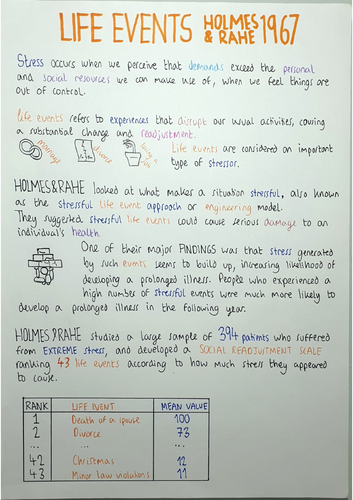 LIFE EVENTS HOLMES & RAHE 1967
Stress occurs when we perceive that demands exceed the personal
and social resources we can make use of, when we feel things are
out of control.
Life events refers to experiences that disrupt our usual activities, causing
a substantial change and readjustment.
marriage
divorce
Life events are considered an important
type of stressor.
HOLMES & RAHE looked at what makes a situation stressful, also known
as the stressful life event approach or engineering model.
They suggested stressful life events could cause serious damage to an
individual's health.
One of their major FINDINGS was that stress generated
by such events seems to build up, increasing likelihood of
developing a prolonged illness. People who experienced a
high number of stressful events were much more likely to
develop a prolonged illness in the following year.
HOLMES & RAHE studied a large sample of 394 patients who suffered
from EXTREME stress, and developed a SOCIAL READJUSTMENT SCALE
ranking 43 life events according to how much stress they appeared
to cause.
RANK LIFE EVENT MEAN VALUE
1 Death of a spouse 100
2 Divorce 73
... ... ...
42 Christmas 12
43 Minor law violations 11